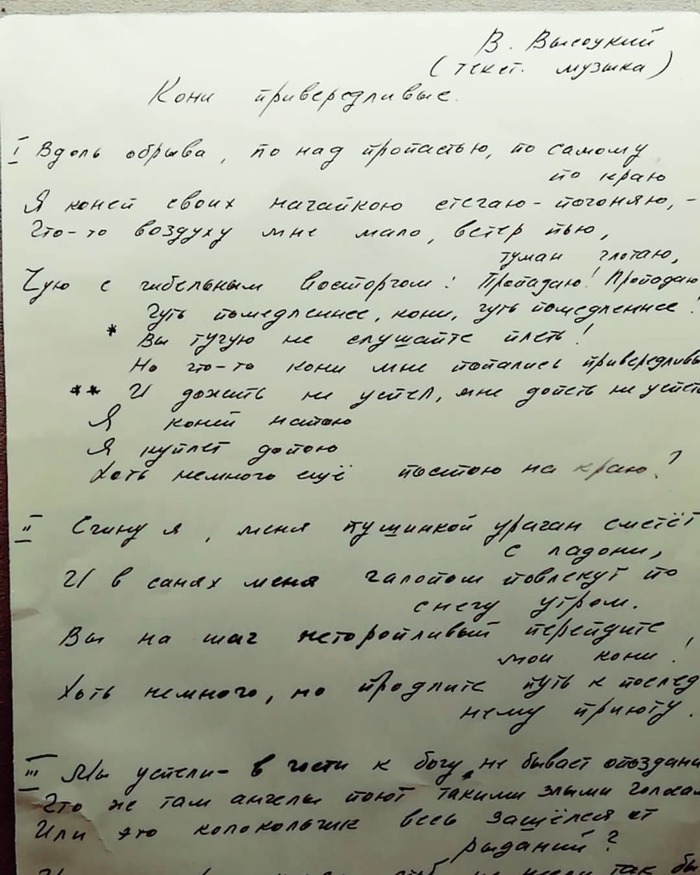 В. Высоцкий
(текст. музыка)
Кони привередливые.
I Вдоль обрыва, по над пропастью, по самому
по краю
Я коней своих нагайкою стегаю-погоняю, -
Что-то воздуху мне мало, ветер пью,
туман глотаю,
Чую с гибельным восторгом: Пропадаю! Пропадаю
Чуть помедленнее, кони, чуть помедленнее.
* Вы тугую не слушайте плеть!
Но что-то кони мне попались привередливы
** И дожить не успел, мне допеть не успеть
Я коней напою
Я куплет допою
Хоть немного ещё постою на краю?
II Сгину я, меня пушинкой ураган сметёт
с ладони,
И в санях меня галопом повлекут по
снегу утром.
Вы на шаг неторопливый перейдите
мои кони!
Хоть немного, но продлите путь к послед
нему приюту.
III Мы успели- в гости к богу не бывает опоздани
Что же там ангелы поют такими злыми голосам
Или это колокольчик весь зашёлся от
рыданий?